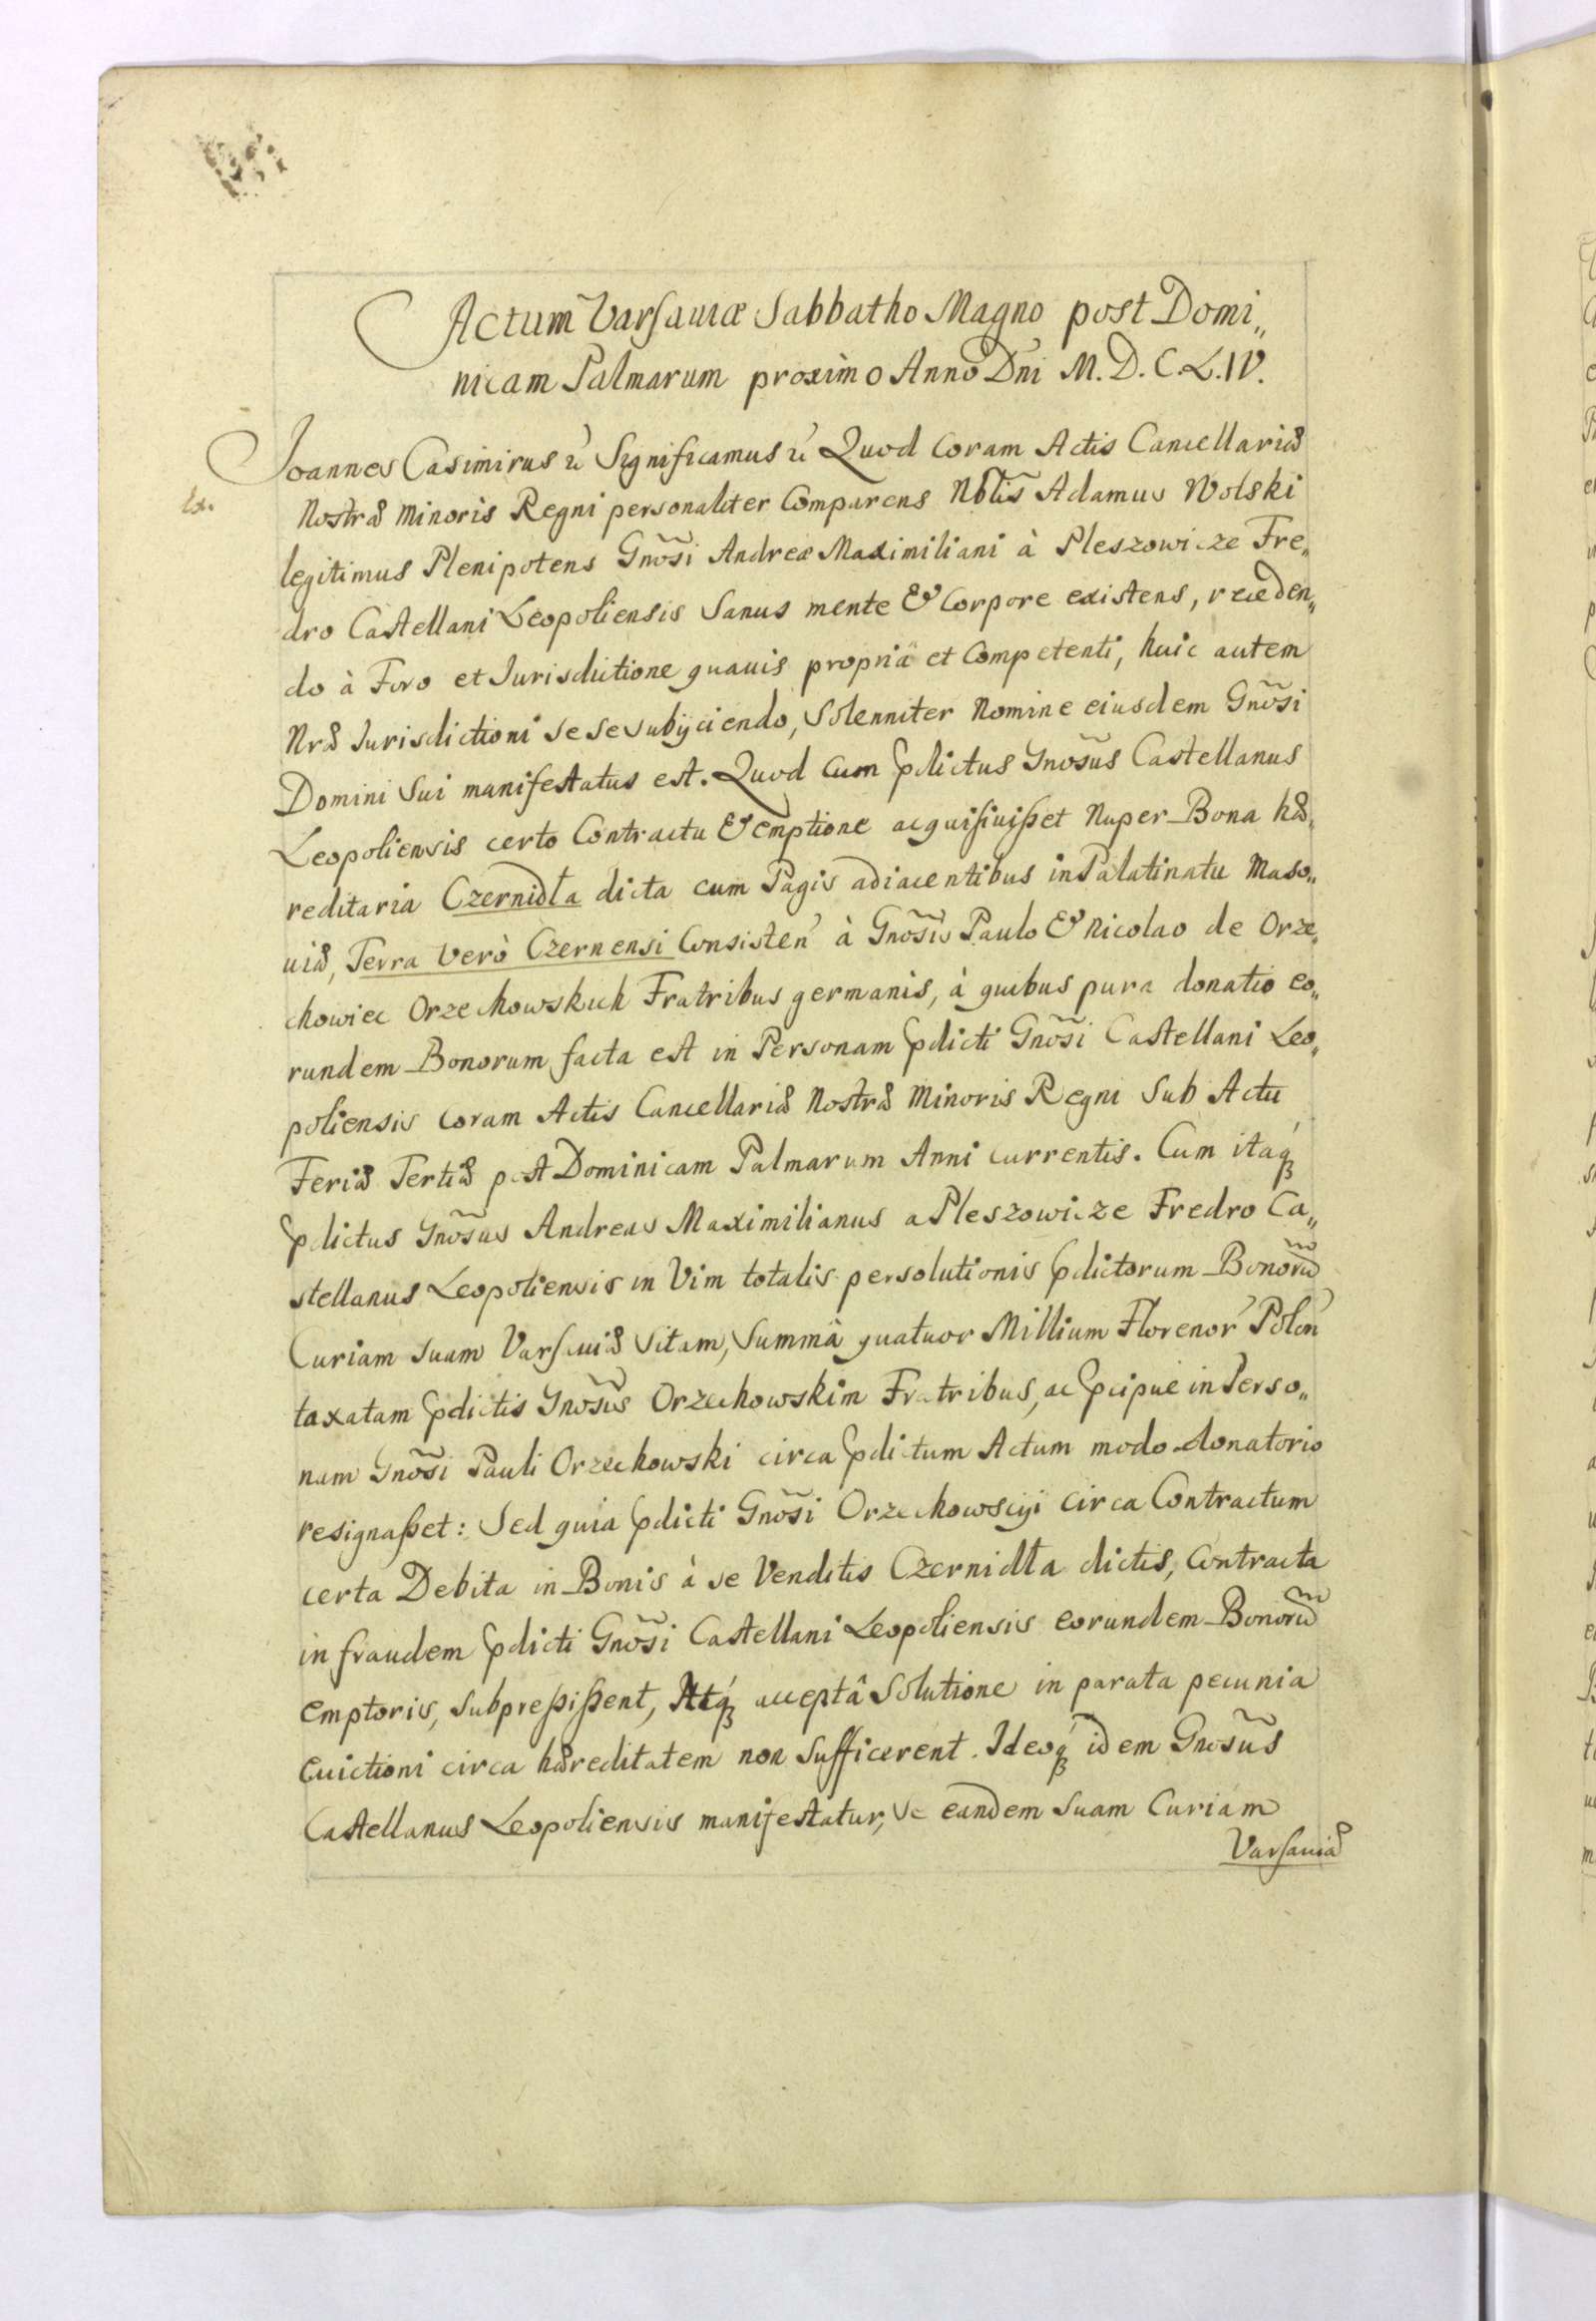 Actum Varsauiæ Sabbatho Magno post Domi„
nicam Palmarum proximo Anno Dni M.D.C.L.IV.
Joannes Casimirus &c Significamus &c Quod Coram Actis Cancellariæ
Nostræ Minoris Regni personaliter Comparens Nblis Adamus Wolski
legitimus Plenipotens Gnosi Andreæ Maximiliani à Pleszowicze Fre„
dro Castellani Leopoliensis Sanus mente & Corpore existens, receden„
do à Foro et Jurisdictione quauis propriâ et Competenti, huic autem
Nræ Jurisdictioni se se subijciendo, Solenniter Nomine eiusdem Gnosi
Domini Sui manifestatus est. Quod Cum pdictus Gnosus Castellanus
Leopoliensis certo Contractu & emptione acquisiuisset Nuper Bona hæ„
reditaria Czernidła dicta cum Pagis adiacentibus in Palatinatu Maso„
uiæ, Terra Verò Czernensi Consisten à Gnosis Paulo & Nicolao de Orze„
chowiec Orzechowskich Fratribus germanis, à quibus pura donatio eo„
rundem Bonorum facta est in Personam pdicti Gnosi Castellani Leo„
poliensis coram Actis Cancellariæ Nostræ Minoris Regni Sub Actu
Feriæ Tertiæ post Dominicam Palmarum Anni currentis. Cum itaq
pdictus Gnosus Andreas Maximilianus a Pleszowicze Fredro Ca„
stellanus Leopoliensis in Vim totalis persolutionis pdictorum Bonorũ
Curiam suam Varsauiæ Sitam, Summâ quatuor Millium Florenor Polon
taxatam pdictis Gnosis Orzechowskim Fratribus, ac pcipue in Perso„
nam Gnosi Pauli Orzechowski circa pdictum Actum modo donatorio
resignasset: Sed quia pdicti Gnosi Orzechowscyi circa Contractum
certa Debita in Bonis à se Venditis Czernidła dictis, Contracta
in fraudem pdicti Gnosi Castellani Leopoliensis eorundem Bonorũ
emptoris, subpressissent, Atq acceptâ Solutione in parata pecunia
Euictioni circa hæreditatem non Sufficerent. Ideoq idem Gnosus
Castellanus Leopoliensis manifestatur, se eandem Suam Curiam
Varsauiæ